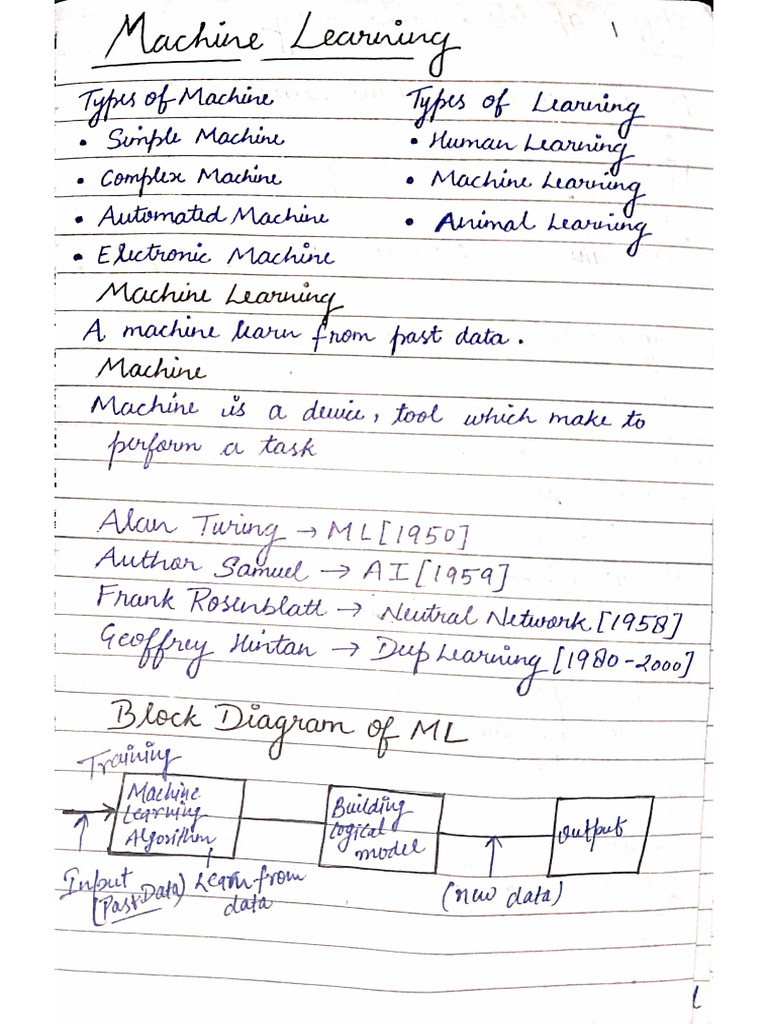 Machine Learning
1
Types of Machine
• Simple Machine
• Complex Machine
• Automated Machine
• Electronic Machine
Types of Learning
• Human Learning
• Machine Learning
• Animal Learning
Machine Learning
A machine learn from past data.
Machine
Machine is a device, tool which make to
perform a task
Alan Turing → ML [1950]
Author Samuel → AI [1959]
Frank Rosenblatt → Neutral Network [1958]
Geoffrey Hintan → Deep Learning [1980-2000]
Block Diagram of ML
Training
Machine
Learning
Algorithm
Building
logical
model
output
Input
[Past Data)
Learn from
data
(new data)